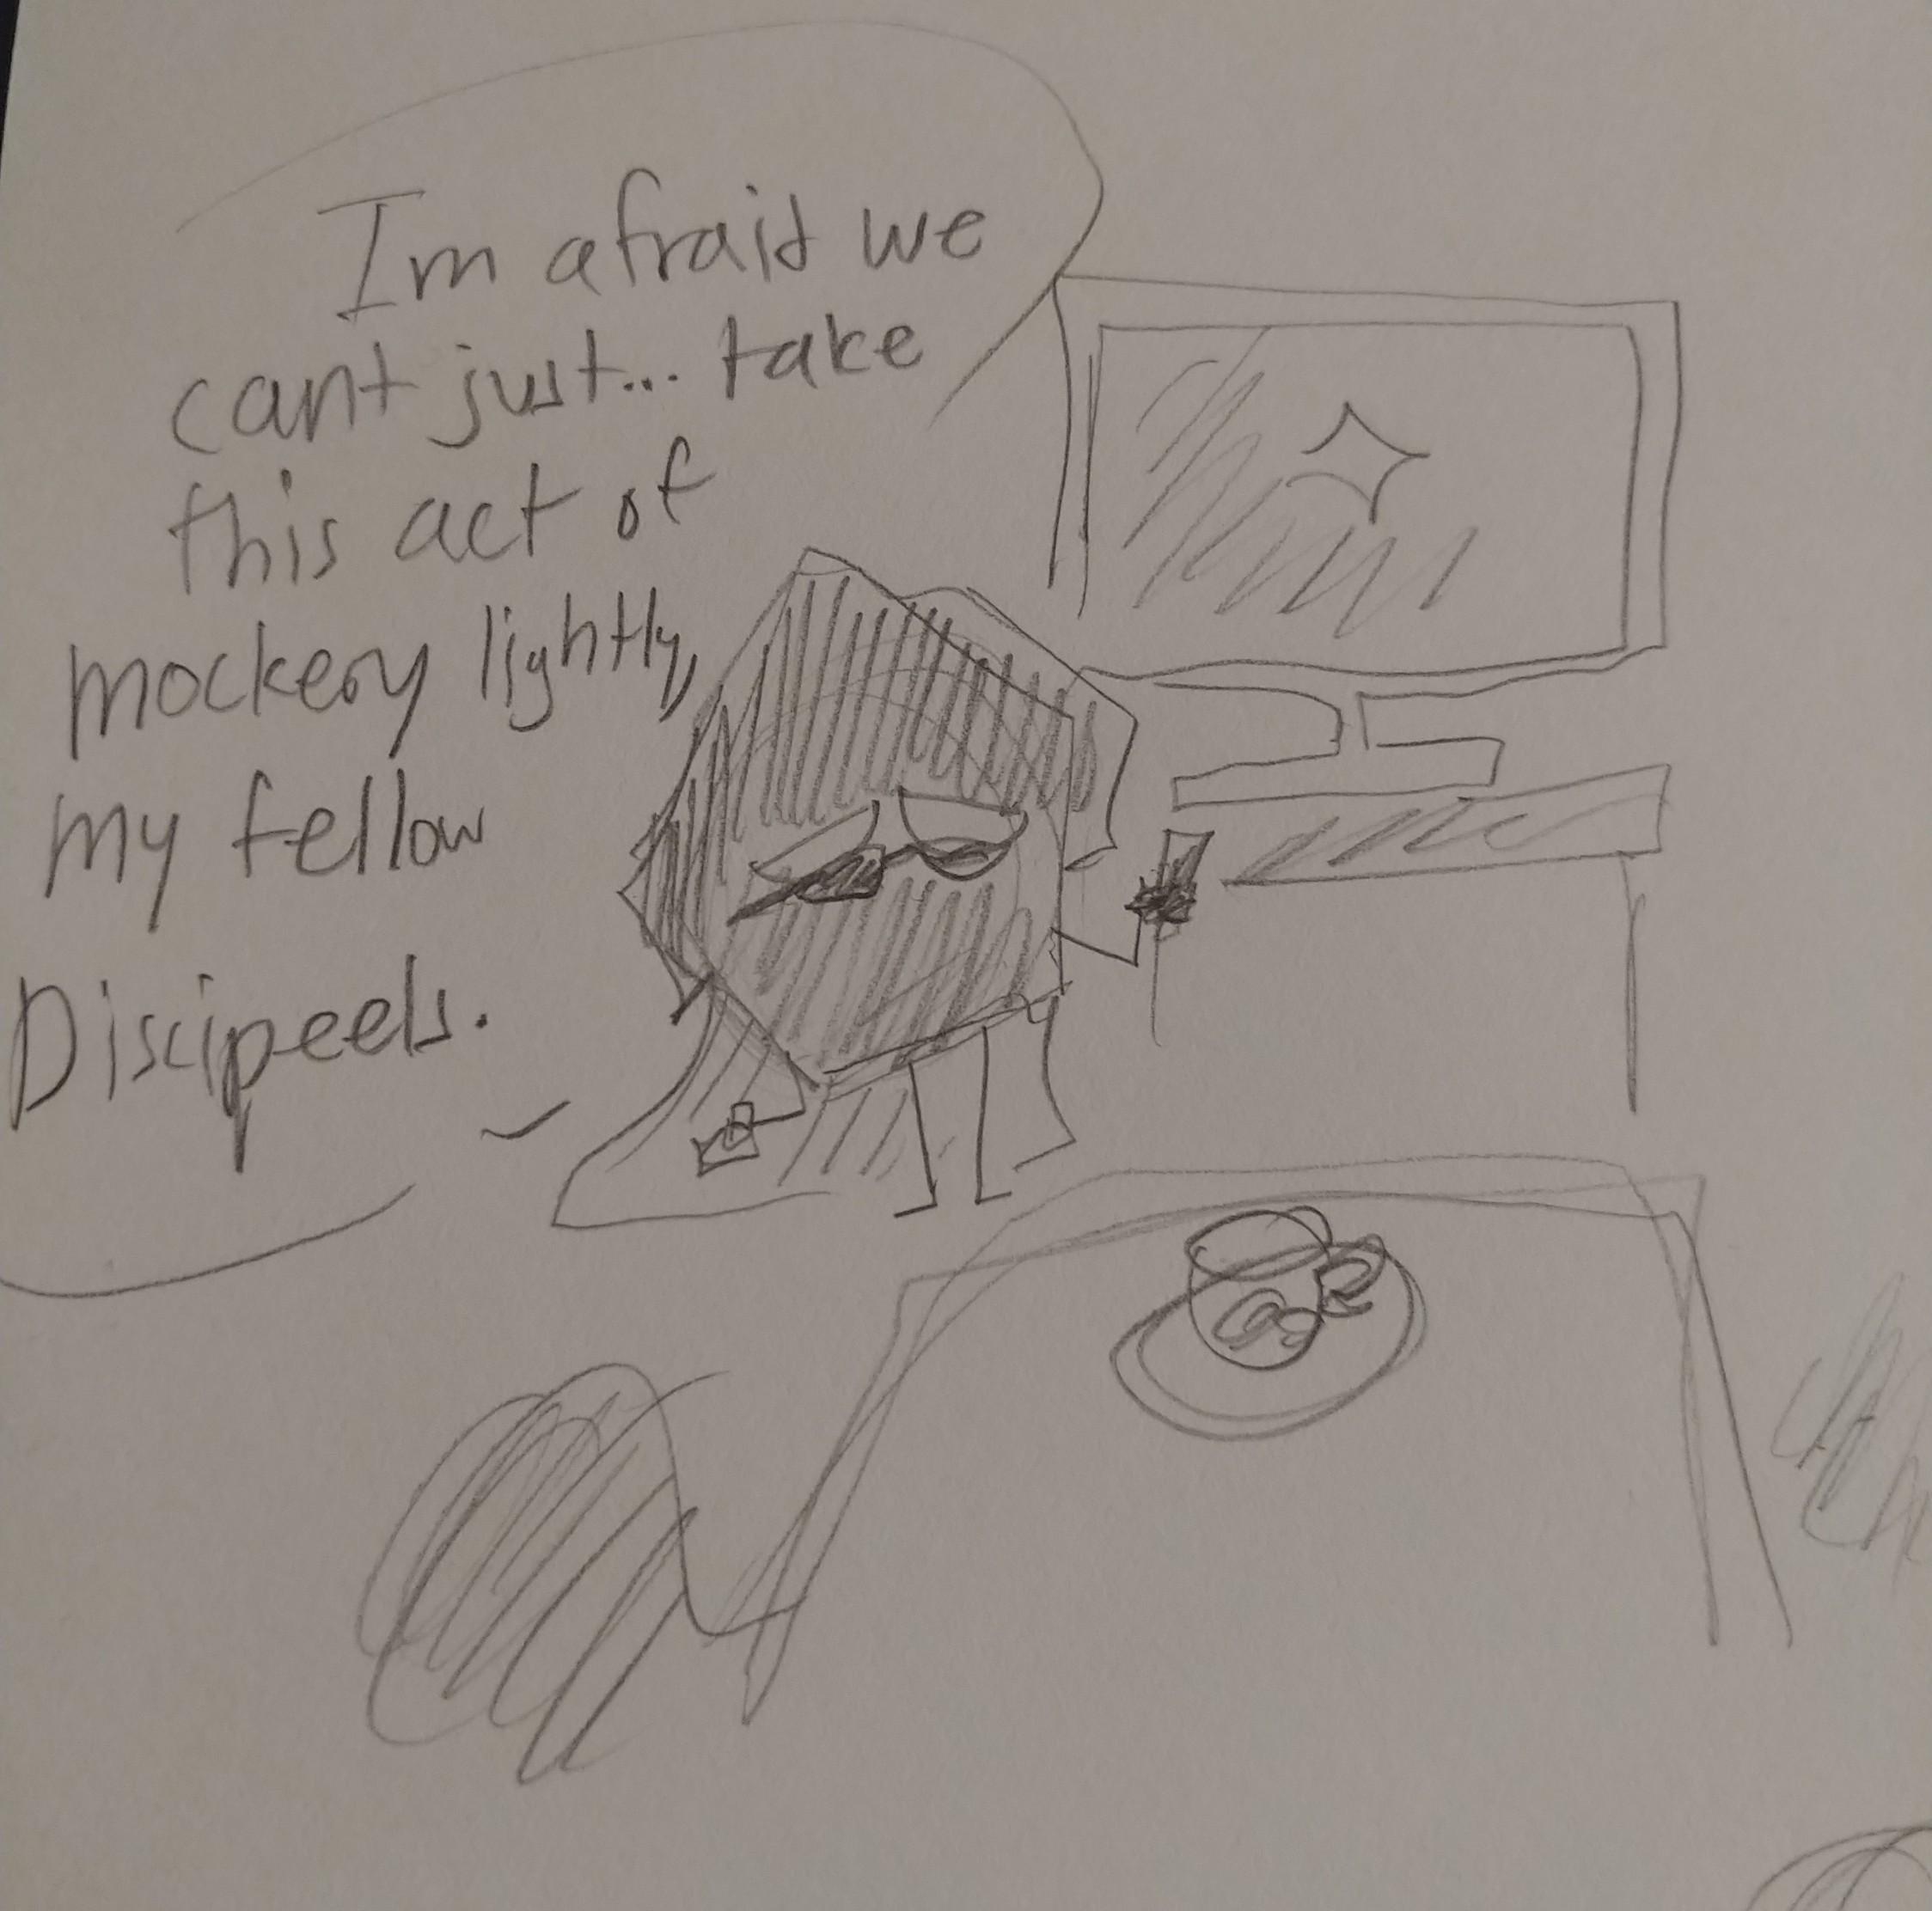 Im afraid we
cant just... take
this act of
mockery lightly,
my fellow
Discipeels.